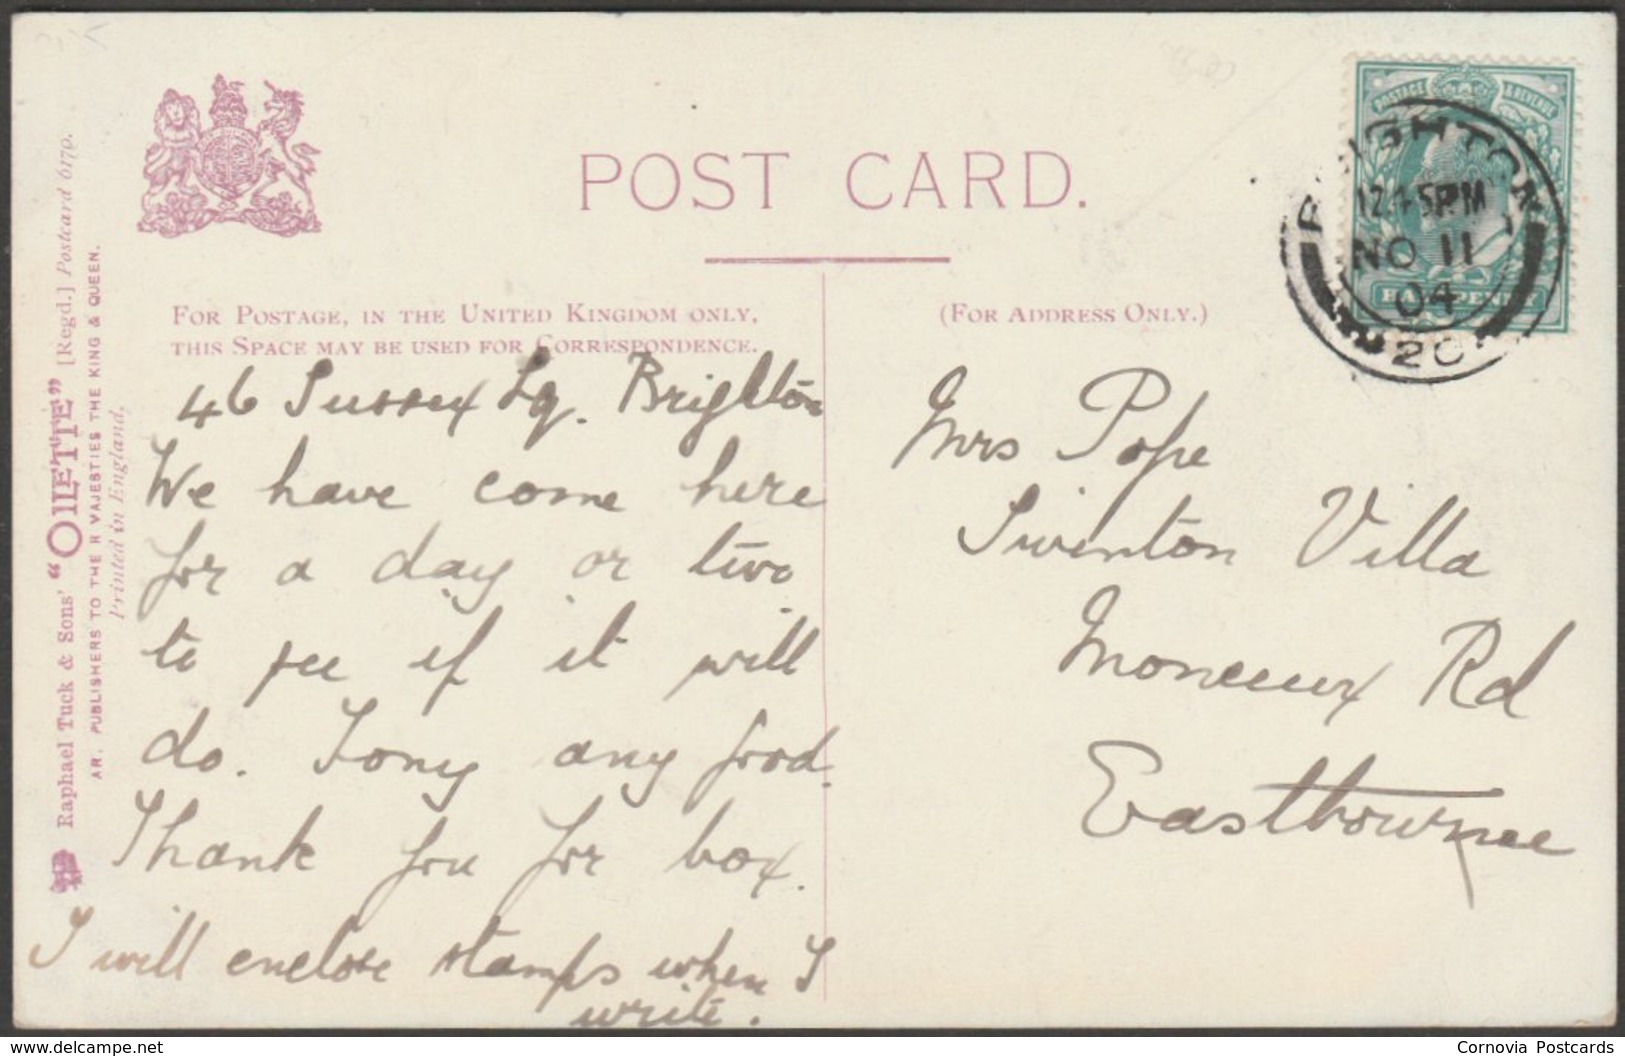 POST CARD.
FOR POSTAGE, IN THE UNITED KINGDOM ONLY,
THIS SPACE MAY BE USED FOR CORRESPONDENCE.
(FOR ADDRESS ONLY.)
Raphael Tuck & Sons' "OILETTE" [Regd.] Postcard 6170.
AR. PUBLISHERS TO THE R MAJESTIES THE KING & QUEEN.
Printed in England.
POSTAGE & REVENUE
HALFPENNY
BRIGHTON
12.15PM
NO 11
04
20
46 Sussex Sq. Brighton
We have come here
for a day or two
to see if it will
do. Tony any good.
Thank you for box.
I will enclose stamps when I
write.
Mrs Pope
Swinton Villa
Monceux Rd
Eastbourne
www.delcampe.net
Cornovia Postcards